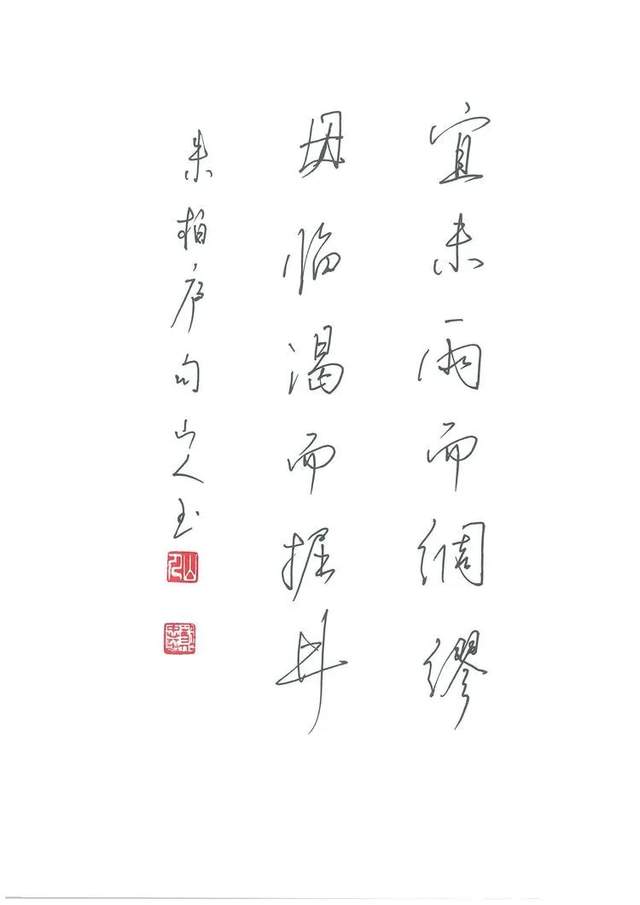 宜未雨而绸缪
毋临渴而掘井
朱柏庐句山人书